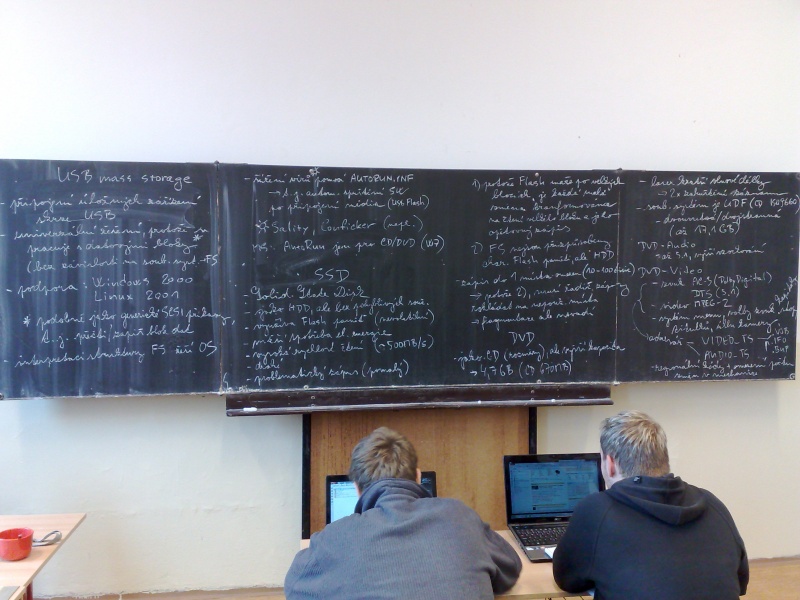 USB mass storage
- připojení úložných zařízení
skrze USB
- univerzální řešení, protože
pracuje s datovými bloky
(bez závislosti na soub. syst. - FS
- podpora: Windows 2000
Linux 2001
* podobné jako generické SCSI příkazy,
t.j. přečti/zapiš blok dat
- interpretaci struktury FS řeší OS
- šíření virů pomocí AUTORUN.INF
→ t.j. autom. spuštění SW
po připojení média (USB Flash)
* Sality, Conficker (např.)
AutoRun jen pro CD/DVD (W7)
SSD
- Solid State Disk
- jako HDD, ale bez pohyblivých souč.
- využívá Flash paměť (nevolatilní)
- nižší spotřeba el. energie
- vysoká rychlost čtení (~500MB/s)
- problematický zápis (pomalý)
1) protože Flash maže po velkých
blocích, je každá malá
změna transformována
na čtení velkého bloku a jeho
opětovný zápis
2) FS nejsou přizpůsobeny
char. Flash paměti, ale HDD
- zápis do 1 místa omezen (10-100 tisíc)
→ protože 2), musí řadič zápisy
rozkládat na různá místa
→ fragmentace ale nevadí
DVD
- jako CD (rozměry), ale vyšší kapacita
→ 4,7GB (CD 670MB)
- laser kratší vlnové délky
→ 2x
- soub. systém je UDF (CD ISO9660)
- dvouvrstvé/dvojstranné
(až 17,1GB)
- DVD-Audio
- až 5.1, vyšší vzorkování
- DVD-Video
- zvuk AC-3 (Dolby Digital)
DTS (5.1)
- video MPEG-2
- systém menu, volby zvuk. stopy,
titulků, úhlu kamery
- adresář VIDEO_TS
AUDIO_TS
VOB
IFO
BUP
- regionální kódy = omezení